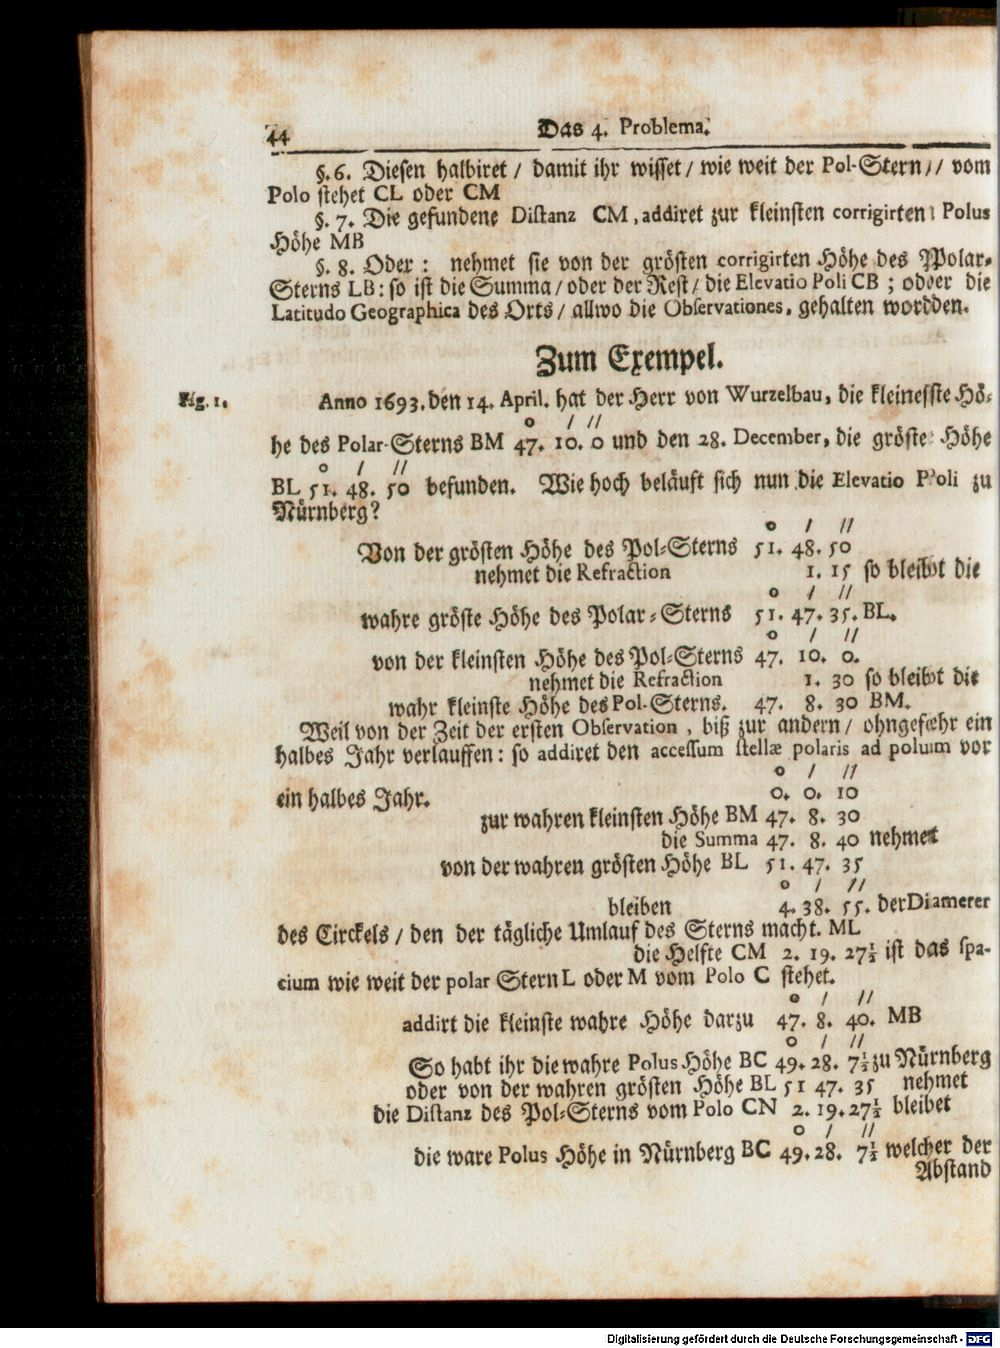 44 Das 4. Problema.
§. 6. Diesen halbiret / damit ihr wisset / wie weit der Pol-Stern / vom
Polo stehet CL oder CM
§. 7. Die gefundene Distanz CM, addiret zur kleinsten corrigirten Polus
Höhe MB
§. 8. Oder: nehmet sie von der grösten corrigirten Höhe des Polar-
Sterns LB: so ist die Summa / oder der Rest / die Elevatio Poli CB ; oder die
Latitudo Geographica des Orts / allwo die Observationes, gehalten worden.
Zum Exempel.
Fig. 1. Anno 1693. den 14. April. hat der Herr von Wurzelbau, die kleineste Hö-
o / //
he des Polar-Sterns BM 47. 10. 0 und den 28. December, die gröste Höhe
o / //
BL 51. 48. 50 befunden. Wie hoch beläuft sich nun die Elevatio Poli zu
Nürnberg?
o / //
Von der grösten Höhe des Pol-Sterns 51. 48. 50
nehmet die Refraction 1. 15 so bleibt die
o / //
wahre gröste Höhe des Polar-Sterns 51. 47. 35. BL.
o / //
von der kleinsten Höhe des Pol-Sterns 47. 10. 0.
nehmet die Refraction 1. 30 so bleibt die
wahr kleinste Höhe des Pol-Sterns. 47. 8. 30 BM.
Weil von der Zeit der ersten Observation, biß zur andern / ohngefæhr ein
halbes Jahr verlauffen: so addiret den accessum stellæ polaris ad polum vor
o / //
ein halbes Jahr. 0. 0. 10
zur wahren kleinsten Höhe BM 47. 8. 30
die Summa 47. 8. 40 nehmet
von der wahren grösten Höhe BL 51. 47. 35
o / //
bleiben 4. 38. 55. der Diameter
des Circkels / den der tägliche Umlauf des Sterns macht. ML
die Helfte CM 2. 19. 27½ ist das spa-
cium wie weit der polar Stern L oder M vom Polo C stehet.
o / //
addirt die kleinste wahre Höhe darzu 47. 8. 40. MB
o / //
So habt ihr die wahre Polus Höhe BC 49. 28. 7½ zu Nürnberg
oder von der wahren grösten Höhe BL 51 47. 35 nehmet
die Distanz des Pol-Sterns vom Polo CN 2. 19. 27½ bleibet
o / //
die ware Polus Höhe in Nürnberg BC 49. 28. 7½ welcher der
Abstand
Digitalisierung gefördert durch die Deutsche Forschungsgemeinschaft - DFG